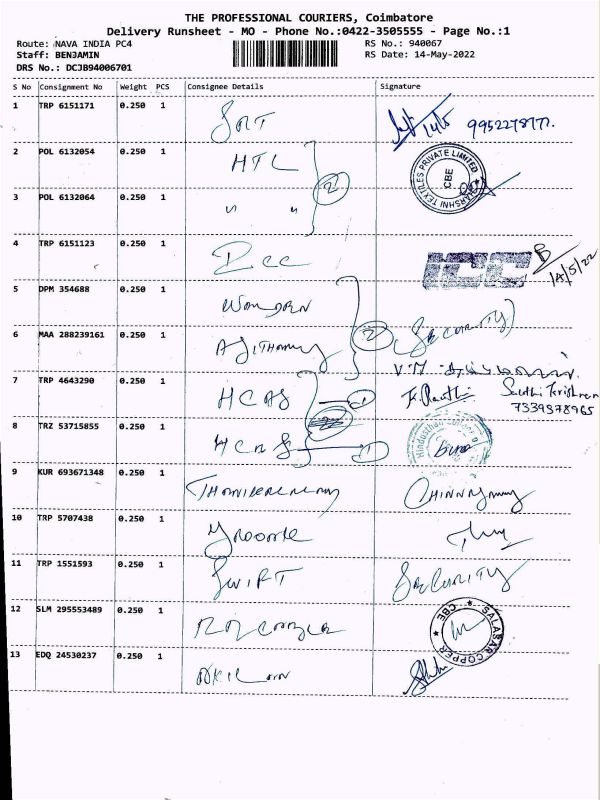 THE PROFESSIONAL COURIERS, Coimbatore
Delivery Runsheet - MO - Phone No.:0422-3505555 - Page No.:1
Route: NAVA INDIA PC4 RS No.: 940067
Staff: BENJAMIN RS Date: 14-May-2022
DRS No.: DCJB94006701
S No Consignment No Weight PCS Consignee Details Signature
1 TRP 6151171 0.250 1 14/5 9952278777.
2 POL 6132054 0.250 1 HTL 2 TEXTILES PRIVATE LIMITED CBE
3 POL 6132064 0.250 1 " "
4 TRP 6151123 0.250 1 ICC 14/5/22
5 DPM 354688 0.250 1
6 MAA 288239161 0.250 1 2 SECURITY
7 TRP 4643290 0.250 1 HCAS 1 Sakthi Krishnan
7339378965
8 TRZ 53715855 0.250 1 HCAS 1 Hindusthan
9 KUR 693671348 0.250 1
10 TRP 5707438 0.250 1
11 TRP 1551593 0.250 1 SWIFT SECURITY
12 SLM 295553489 0.250 1 SALASAR COPPER CBE
13 EDQ 24530237 0.250 1